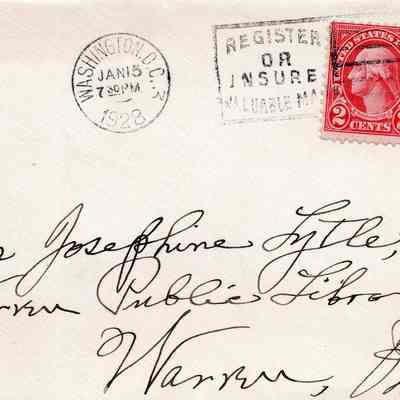 WASHINGTON, D.C.
JAN 15
7 30 PM
1928
REGISTER
OR
INSURE
VALUABLE MA
UNITED STATES
2 CENTS 2
Josephine Lytle,
Public Libra
Warren,